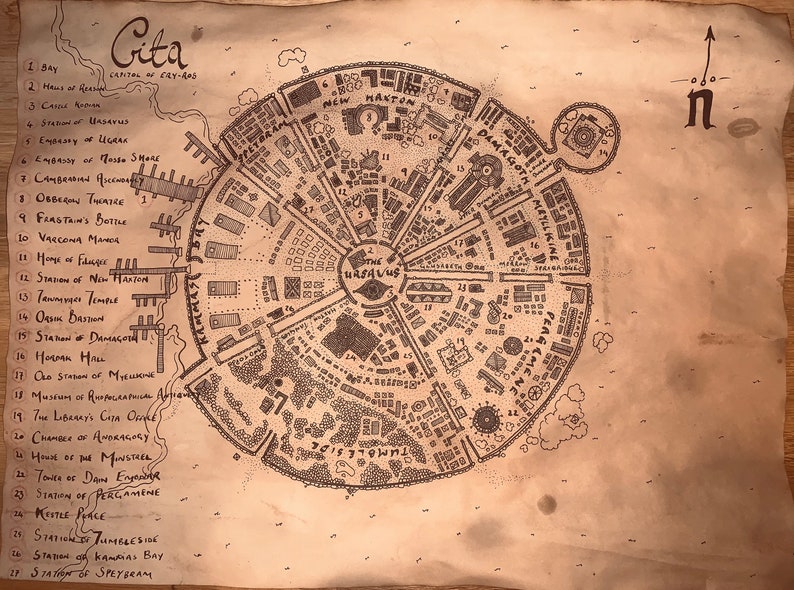 Cita
CAPITOL OF ERY-ROS
n
1 BAY
2 HALLS OF REASON
3 CASTLE KODIAK
4 STATION OF URSAVUS
5 EMBASSY OF UGRAK
6 EMBASSY OF MOSSO SHORE
7 CAMBRADIAN ASCENDANCY
8 OBBEROW THEATRE
9 FRABTAIN'S BOTTLE
10 VARCONA MANOR
11 HOME OF FILIGREE
12 STATION OF NEW HAXTON
13 TRIUMVARI TEMPLE
14 ORSIK BASTION
15 STATION OF DAMAGOTH
16 HORDAK HALL
17 OLD STATION OF MYELKINE
18 MUSEUM OF RHOPOGRAPHICAL ANTIQUITY
19 THE LIBRARY'S CITA OFFICE
20 CHAMBER OF ANDRAGORY
21 HOUSE OF THE MINSTREL
22 TOWER OF DAIN
23 STATION OF PERGAMENE
24 KESTLE PLACE
25 STATION OF TUMBLESIDE
26 STATION OF BAY
27 STATION OF SPEYBRAM
NEW HAXTON
SPEYBRAM
DAMAGOTH
MYELKINE
THE URSAVUS
BAY
TUMBLESIDE
6
7
8
10
11
9
12
5
13
14
15
17
16
1
2
23
18
19
20
21
22
24
25
26
27